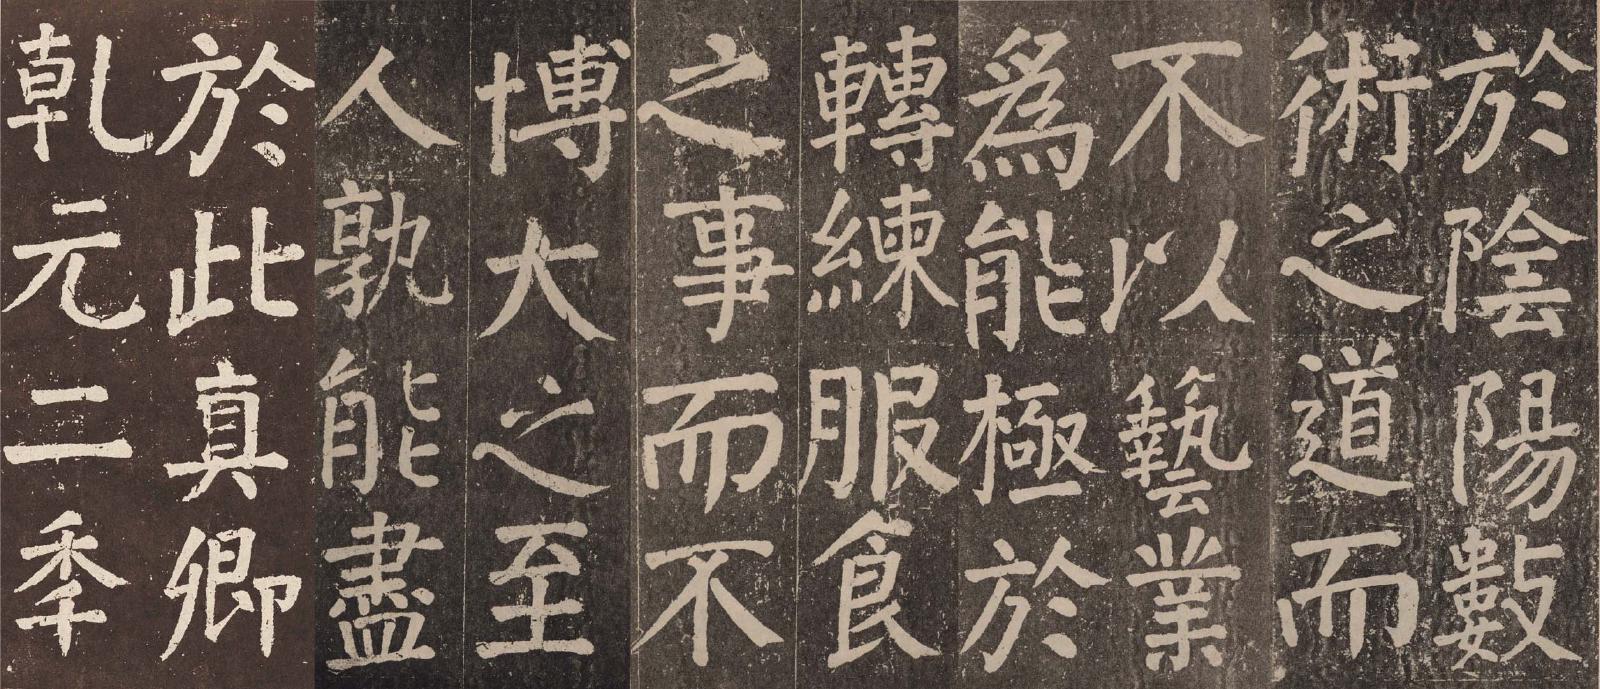 於陰陽數
術之道而
不以藝業
為能極於
轉練服食
之事而不
博大之至
人孰能盡
於此真卿
乾元二季